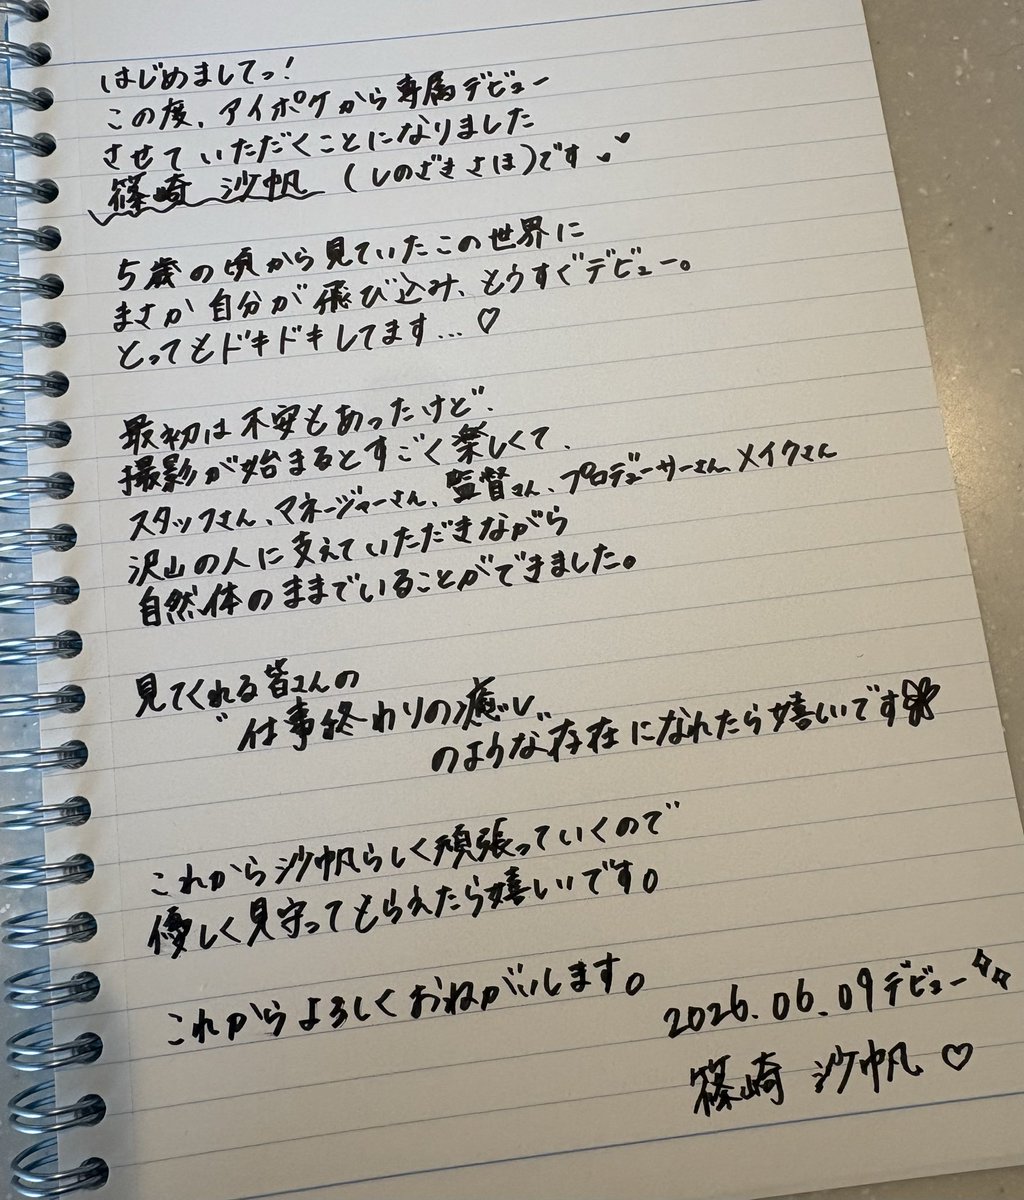 はじめましてっ!
この度、アイポケから専属デビュー
させていただくことになりました
篠崎 沙帆 (しのざきさほ)です
5歳の頃から見ていたこの世界に
まさか自分が飛び込み、もうすぐデビュー。
とってもドキドキしてます…♡
最初は不安もあったけど、
撮影が始まるとすごく楽しくて、
スタッフさん、マネージャーさん、監督さん、プロデューサーさん、メイクさん
沢山の人に支えていただきながら
自然体のままでいることができました。
見てくれる皆さんの
"仕事終わりの癒し"
のような存在になれたら嬉しいです
これから沙帆らしく頑張っていくので
優しく見守ってもらえたら嬉しいです。
これからよろしくおねがいします。
2026.06.09デビュー
篠崎 沙帆♡